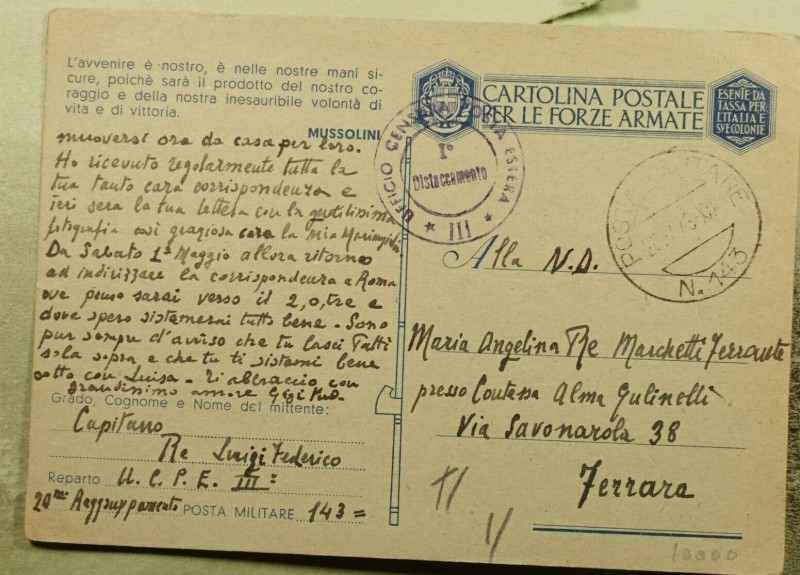 L'avvenire è nostro, è nelle nostre mani si-
cure, poichè sarà il prodotto del nostro co-
raggio e della nostra inesauribile volontà di
vita e di vittoria.
MUSSOLINI
muoversi ora da casa per loro.
Ho ricevuto regolarmente tutta la
tua tanto cara corrispondenza e
ieri sera la tua lettera con la gentilissima
fotografia così graziosa cara la mia
Da Sabato 1º Maggio allora ritorno
ad indirizzare la corrispondenza a Roma
ove penso sarai verso il 2, o tre e
dove spero sistemerai tutto bene. Sono
pur sempre d'avviso che tu lasci Tatti
sola sopra e che tu ti sistemi bene
sotto con Luisa. Ti abbraccio con
grandissimo amore Gigi
Grado, Cognome e Nome del mittente:
Capitano
Re Luigi Federico
Reparto U.C.P.E. III=
20mo Raggruppamento POSTA MILITARE 143=
CARTOLINA POSTALE
PER LE FORZE ARMATE
ESENTE DA
TASSA PER
L'ITALIA E
SUE COLONIE
UFFICIO CENSURA POSTA ESTERA
I°
Distaccamento
III
POSTA MILITARE
N. 143
Alla N.D.
Maria Angelina Re Marchetti Ferrante
presso Contessa Alma Gulinelli
Via Savonarola 38
Ferrara
1/
1/
10000